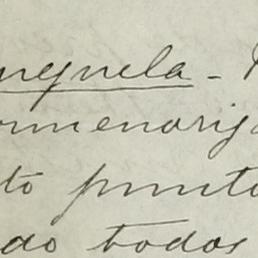 nezuela -
pormenoriza
to punto
do todos